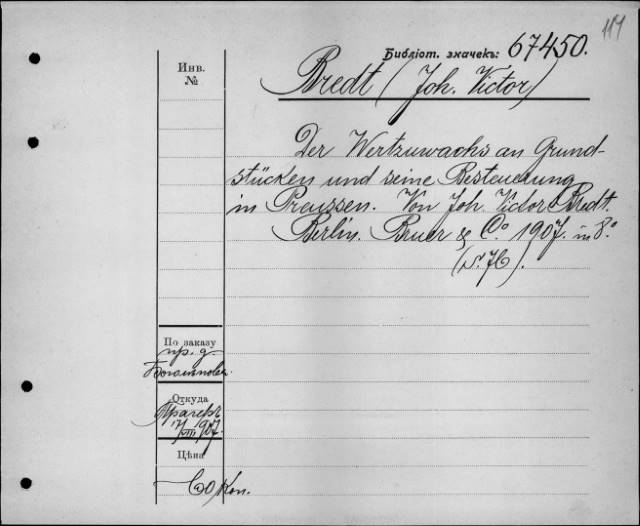 Библіот. значекъ: 67450.
Инв.
№
Bredt (Joh. Victor)
Der Wertzuwachs an Grund-
stücken und seine Besteuerung
in Preussen. Von Joh. Victor Bredt.
Berlin. Bruer & Co. 1907. in 8º.
По заказу
пр. д
Откуда
1907.
Цѣна
60 Коп.